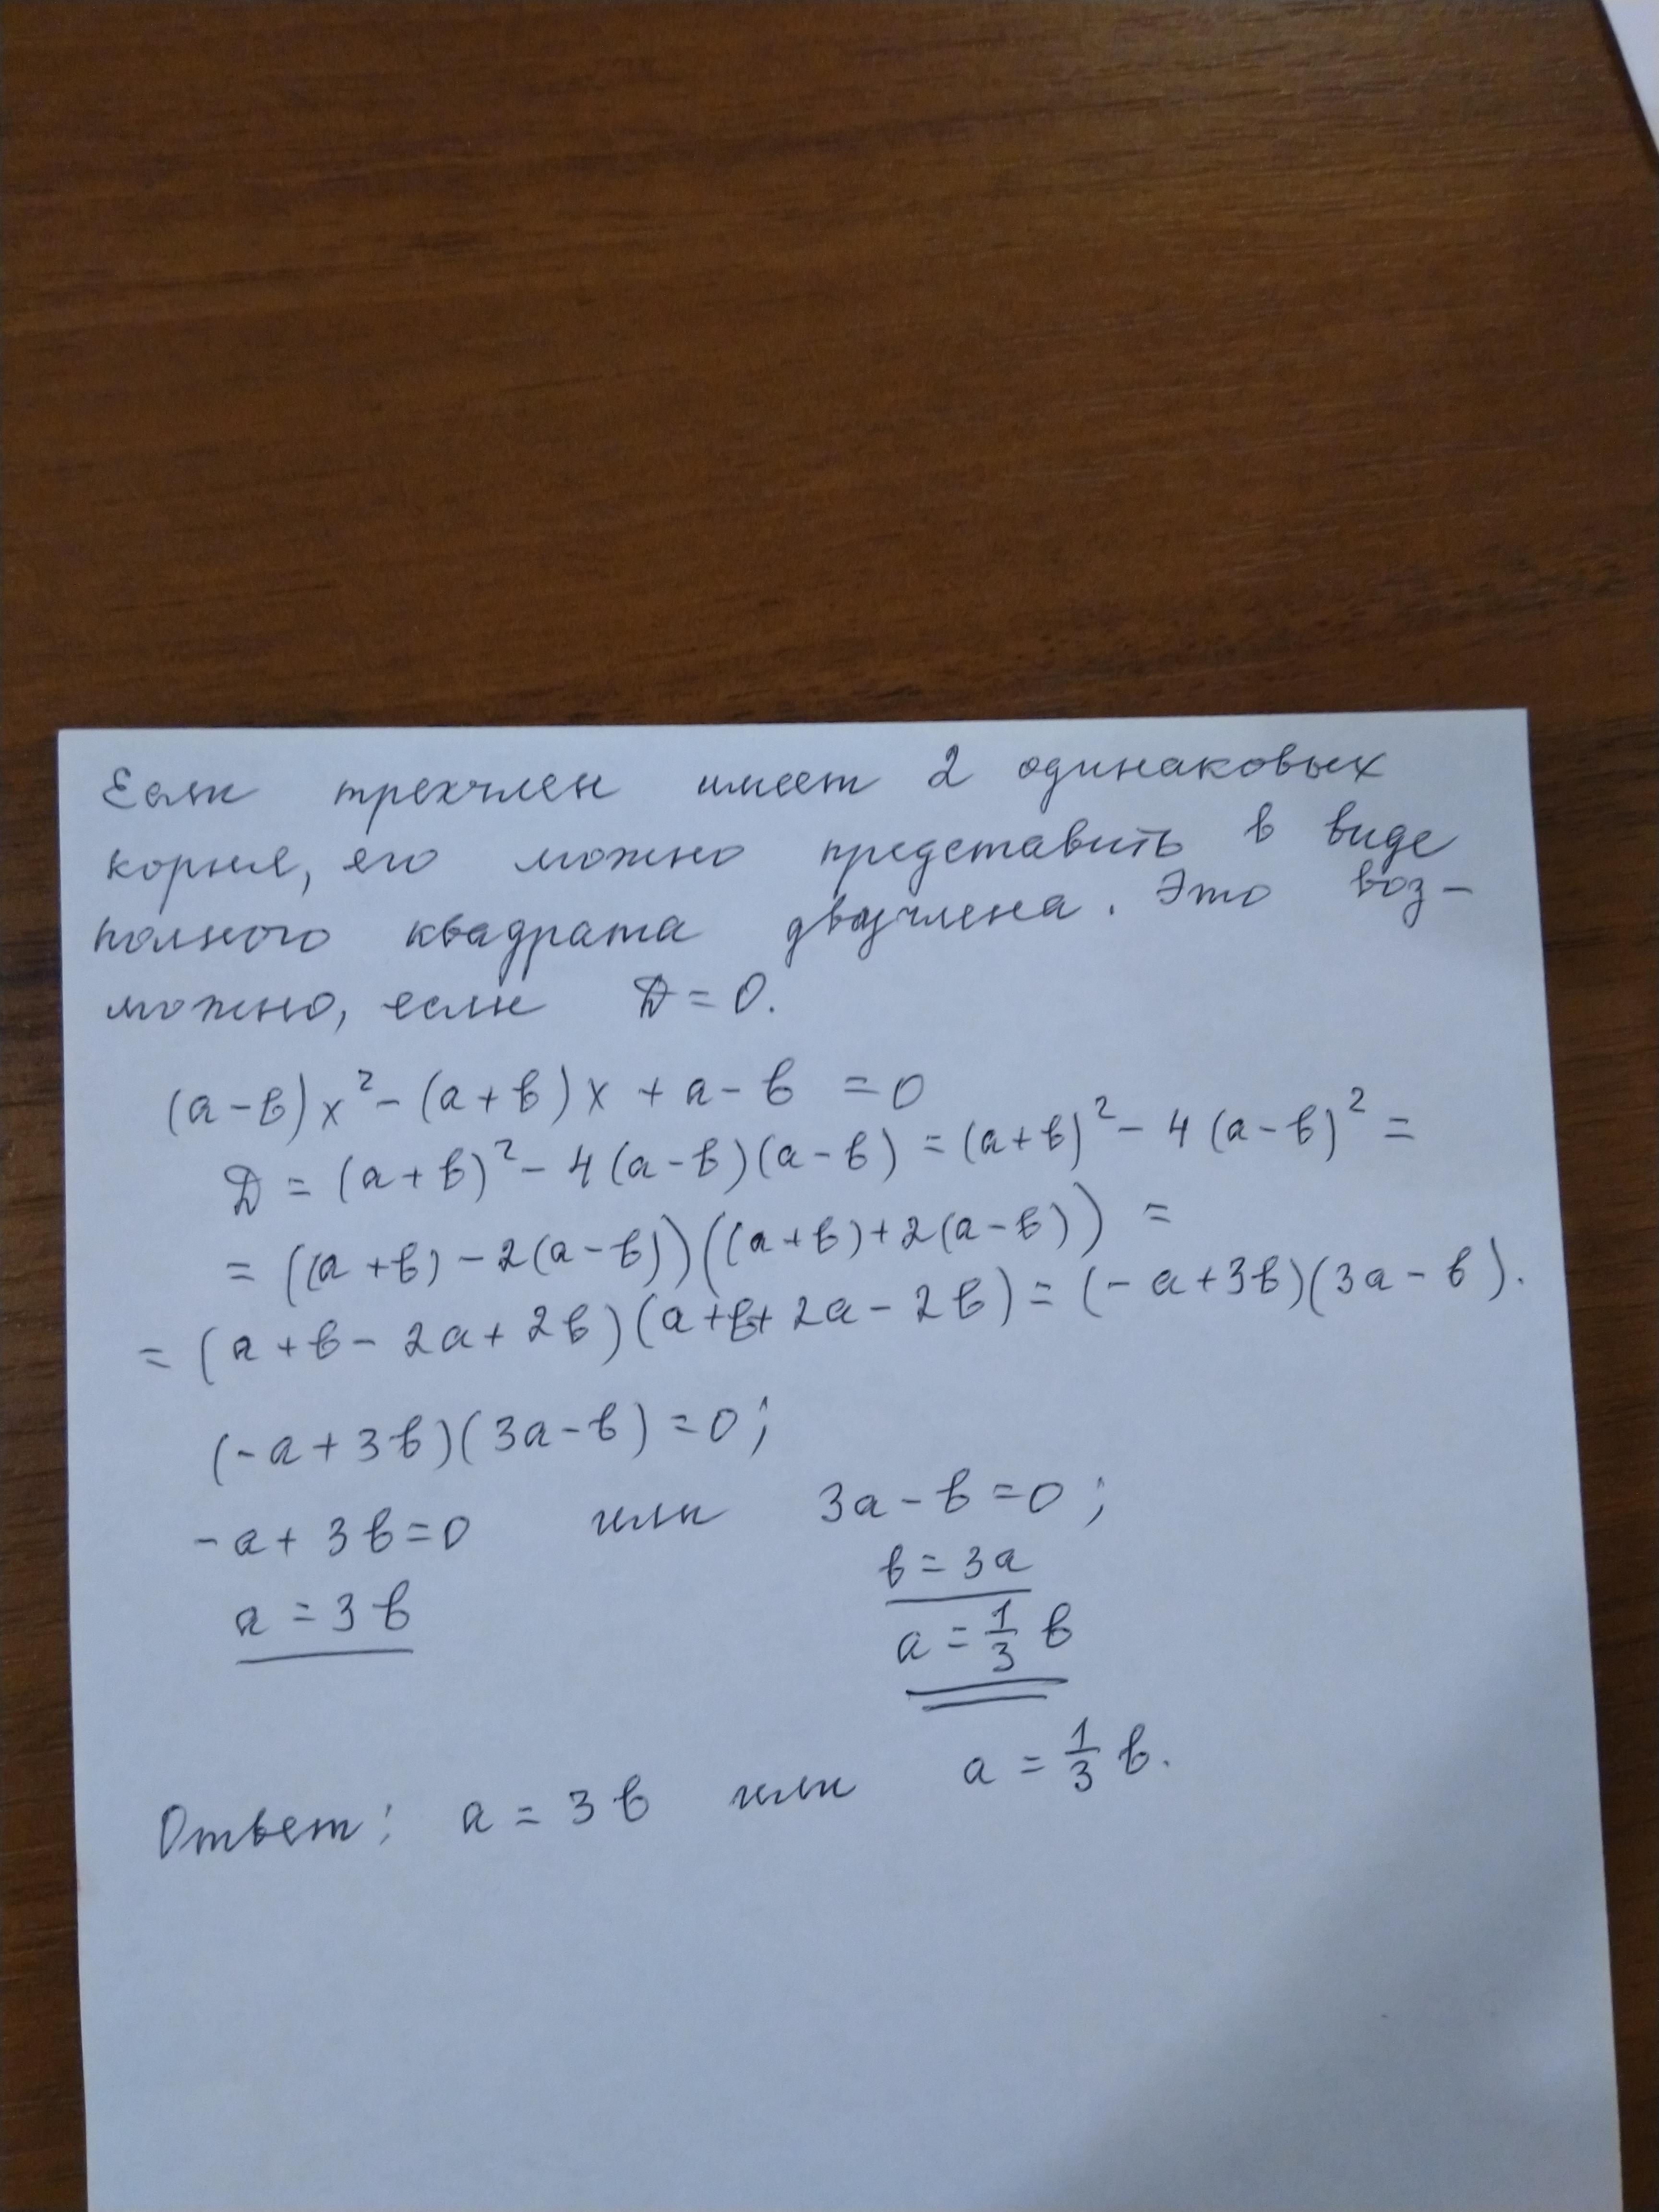 Если трехчлен имеет 2 одинаковых
корня, его можно представить в виде
полного квадрата двучлена. Это воз-
можно, если D = 0.
(a-b)x² - (a+b)x + a - b = 0
D = (a+b)² - 4(a-b)(a-b) = (a+b)² - 4(a-b)² =
= ((a+b) - 2(a-b))((a+b) + 2(a-b)) =
= (a+b - 2a + 2b)(a+b + 2a - 2b) = (-a+3b)(3a-b).
(-a+3b)(3a-b) = 0;
-a + 3b = 0 или 3a - b = 0;
b = 3a
a = 3b
a = 1/3 b
Ответ: a = 3b или a = 1/3 b.